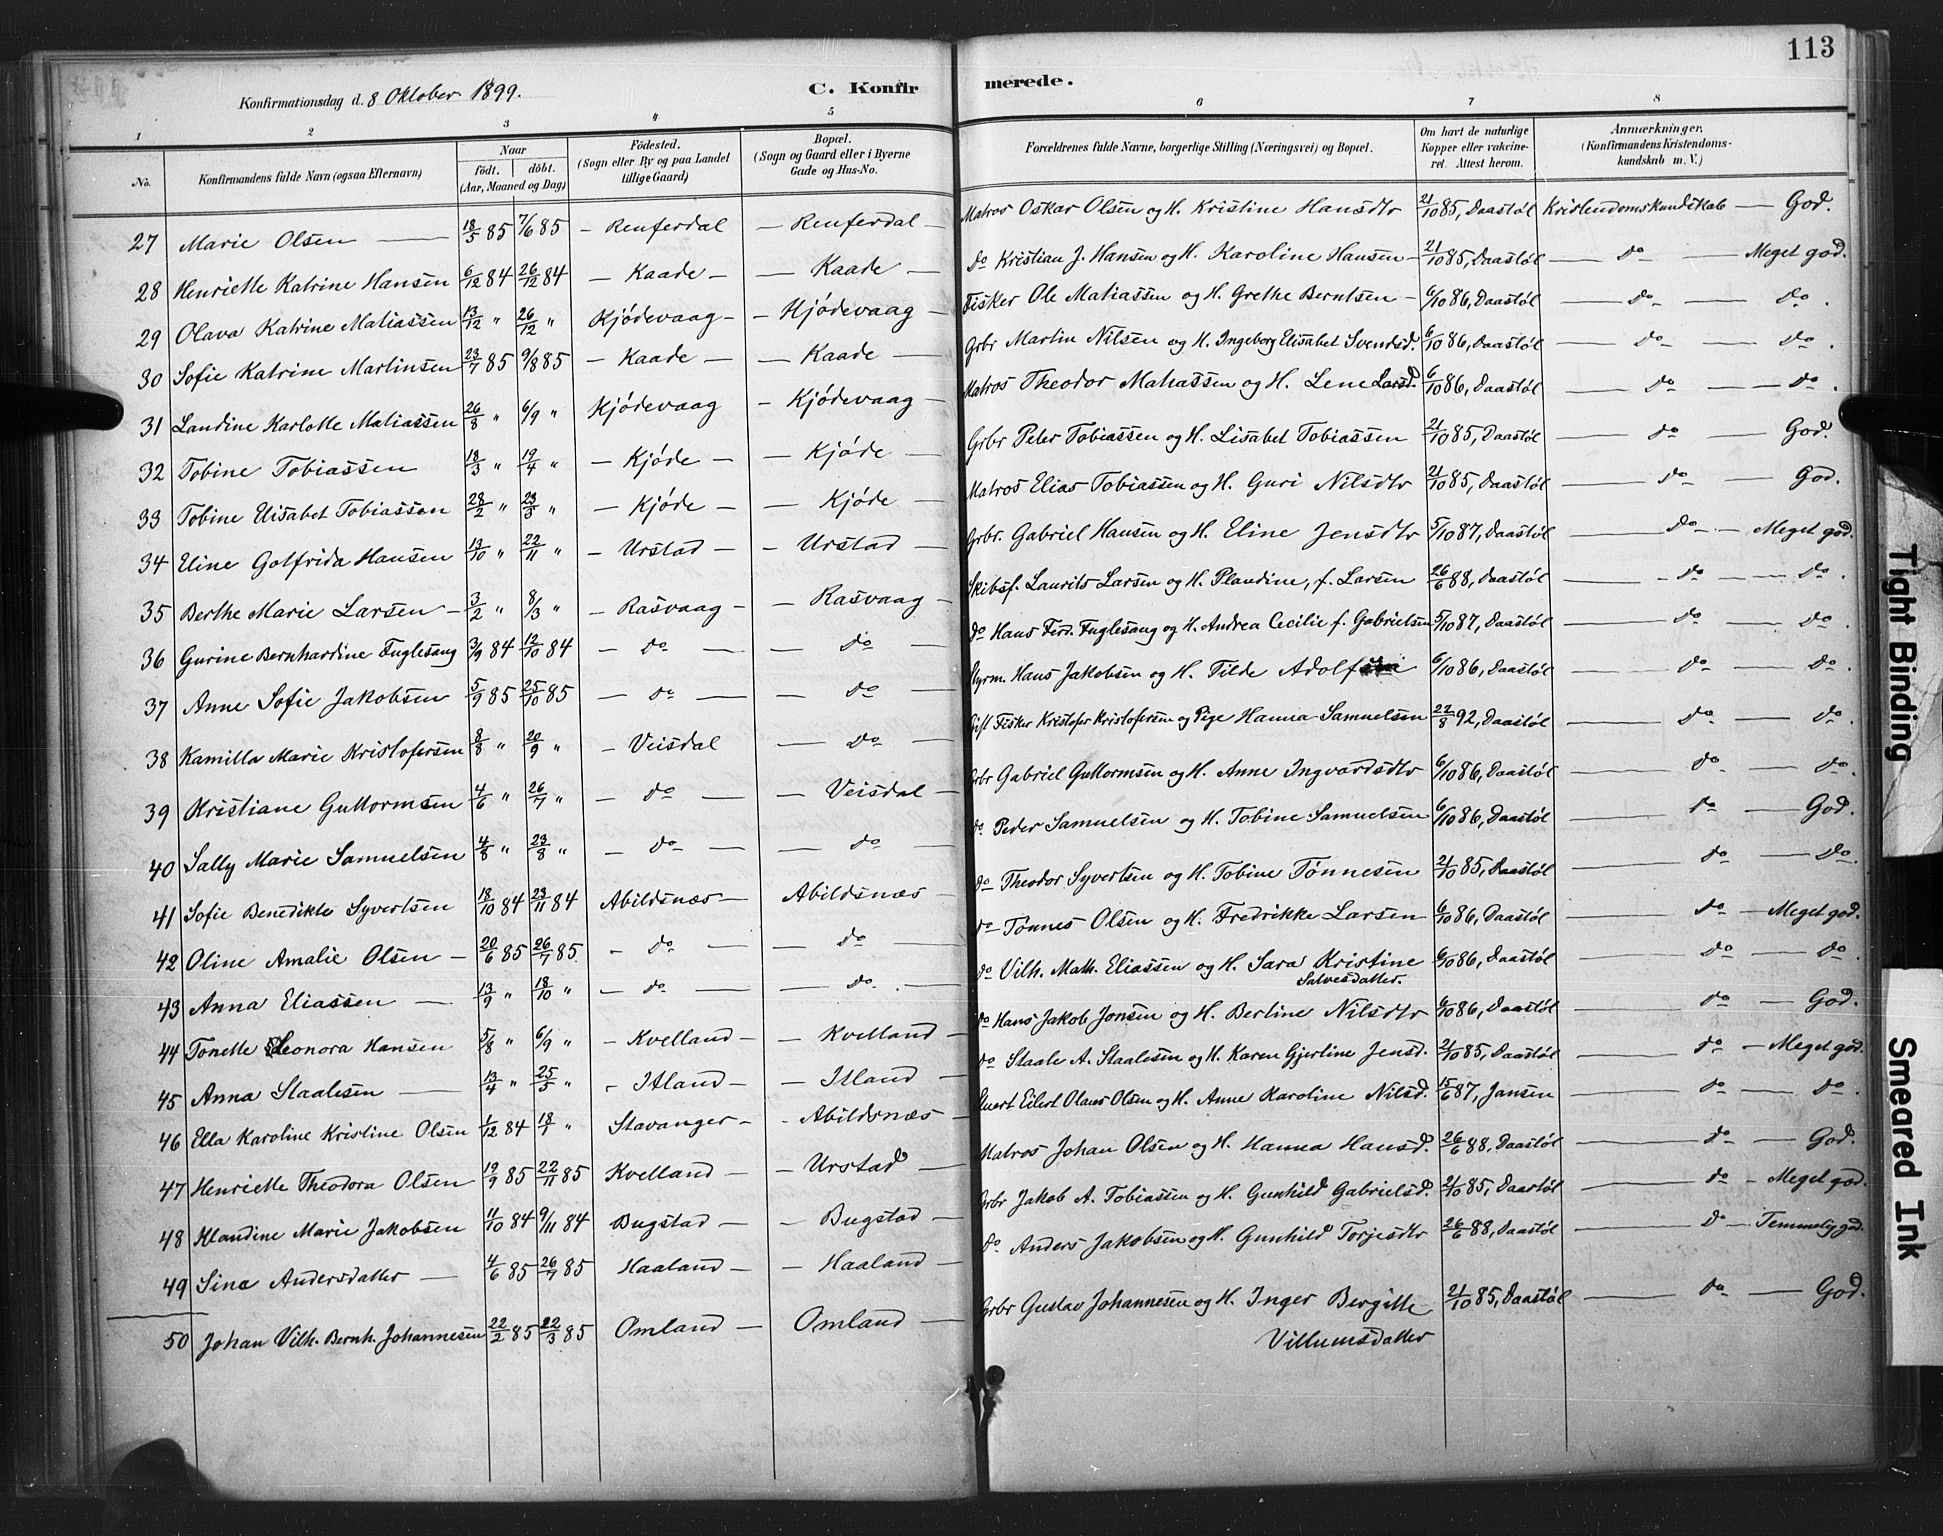 113
Konfirmationsdag d. 8 Oktober 1899. C. Konfirmerede.
1 2 3 4 5 6 7 8
No. Konfirmandens fulde Navn (ogsaa Efternavn) Naar født. døbt. (Aar, Maaned og Dag) Fødested. (Sogn eller By og paa Landet tillige Gaard) Bopæl. (Sogn og Gaard eller i Byerne Gade og Hus-No. Forældrenes fulde Navne, borgerlige Stilling (Næringsvei) og Bopæl. Om havt de naturlige Kopper eller vaccineret. Attest herom. Anmærkninger. (Konfirmandens Kristendomskundskab m. V.)
27 Marie Olsen — 18/5 85 7/6 85 — Renferdal — Renferdal — Matros Oskar Olsen og H. Kristine Hansdtr 21/10 85, Daastøl Kristendomskundskab — God.
28 Henriette Katrine Hansen 6/12 84 26/12 84 — Kaade — — Kaade — Do Kristian J. Hansen og H. Karoline Hansen — 21/10 85, Daastøl — Do — Meget god.
29 Olava Katrine Matiassen 13/12 " 26/12 " Kjødevaag — — Kjødevaag — Fisker Ole Matiassen og H. Grethe Berntsen — 6/10 86, Daastøl — Do — Do.
30 Sofie Katrine Martinsen 23/7 85 9/8 85 — Kaade — — Kaade — Grbr Martin Nilsen og H. Ingeborg Elisabet Svendsd. 6/10 86, Daastøl — Do — Do.
31 Landine Karlotte Matiassen 26/8 " 6/9 " Kjødevaag — Kjødevaag — Matros Theodor Matiassen og H. Lene Larsd. 6/10 86, Daastøl — Do — Do.
32 Tobine Tobiassen 18/3 " 19/4 " — Kjøde — — Kjøde — Grbr Peter Tobiassen og H. Lisabet Tobiassen 21/10 85, Daastøl — Do — God.
33 Tobine Elisabet Tobiassen 28/2 " 23/3 " — Kjøde — — Kjøde — Matros Elias Tobiassen og H. Guri Nilsdtr 21/10 85, Daastøl — Do — God.
34 Eline Gotfrida Hansen 13/10 " 22/11 " — Urstad — — Urstad — Grbr. Gabriel Hansen og H. Eline Jensdtr 5/10 87, Daastøl — Do — Meget god.
35 Berthe Marie Larsen — 3/2 " 8/3 " — Rasvaag — — Rasvaag — Skibsf. Laurits Larsen og H. Plandine, f. Larsen 26/6 88, Daastøl — Do — Do.
36 Gurine Bernhardine Fuglesang 3/9 84 12/10 84 — Do — — Do — Do Hans Ferd. Fuglesang og H. Andrea Cecilie f. Gabrielsen 5/10 87, Daastøl — Do — Do.
37 Anne Sofie Jakobsen 5/9 85 25/10 85 — Do — — Do — Styrm. Hans Jakobsen og H. Tilde 6/10 86, Daastøl — Do — Do.
38 Kamilla Marie Kristofersen 8/8 " 20/9 " — Veisdal — Do — Gift Fisker Kristofer Kristofersen og Pige Hanna Samuelsen 22/8 92, Daastøl — Do — Do.
39 Kristiane Guttormsen 4/6 " 26/7 " — Do — — Veisdal — Grbr Gabriel Guttormsen og H. Anne Ingvardsdtr 6/10 86, Daastøl — Do — Do.
40 Sally Marie Samuelsen 4/8 " 23/8 " — Do — — Do — Do Peder Samuelsen og H. Tobine Samuelsen 6/10 86, Daastøl — Do — God.
41 Sofie Benedikte Syvertsen 18/10 84 23/11 84 Abildsnæs — Abildsnæs — Do Theodor Syvertsen og H. Tobine Tønnesen 21/10 85, Daastøl — Do — Do.
42 Oline Amalie Olsen — 20/6 85 26/7 85. — Do — — Do — Do Tønnes Olsen og H. Fredrikke Larsen 6/10 86, Daastøl — Do — Meget god.
43 Anna Eliassen — 13/9 " 18/10 " — Do — — Do — Do Vilh. Math. Eliassen og H. Sara Kristine Salvesdatter. 6/10 86, Daastøl — Do — Do.
44 Tonette Leonora Hansen 5/8 " 6/9 " — Kvelland — — Kvelland — Do Hans Jakob Jonsen og H. Berline Nilsdtr 6/10 86, Daastøl — Do — God.
45 Anna Staalesen — 13/4 " 25/5 " — Itland — — Itland — Do Staale A. Staalesen og H. Karen Gjertine Jensd. 21/10 85, Daastøl — Do — Meget god.
46 Ella Karoline Kristine Olsen 1/12 84 18/1 " Stavanger — — Abildsnæs — Eilert Olaus Olsen og H. Anne Karoline Nilsd. 15/6 87, Jansen — Do — Do.
47 Henriette Theodora Olsen 19/9 85 22/11 85 Kvelland — — Urstad — Matros Johan Olsen og H. Hanna Hansd. 26/6 88, Daastøl — Do — God.
48 Klandine Marie Jakobsen 11/10 84 9/11 84 Bugstad — — Bugstad — Grbr Jakob A. Tobiassen og H. Gunhild Gabrielsd. 21/10 85, Daastøl — Do — Meget god.
49 Sina Andersdatter — 4/6 85 26/7 85 Haaland — — Haaland — Do Anders Jakobsen og H. Gunhild Torjesdtr 26/6 88, Daastøl — Do — Temmelig god.
50 Johan Vilh. Bernh. Johannesen 22/2 85 22/3 85 Omland — Omland — Grbr Gustav Johannesen og H. Inger Bergitte Villumsdatter 21/10 85, Daastøl — Do — God.
Tight Binding
Smeared Ink